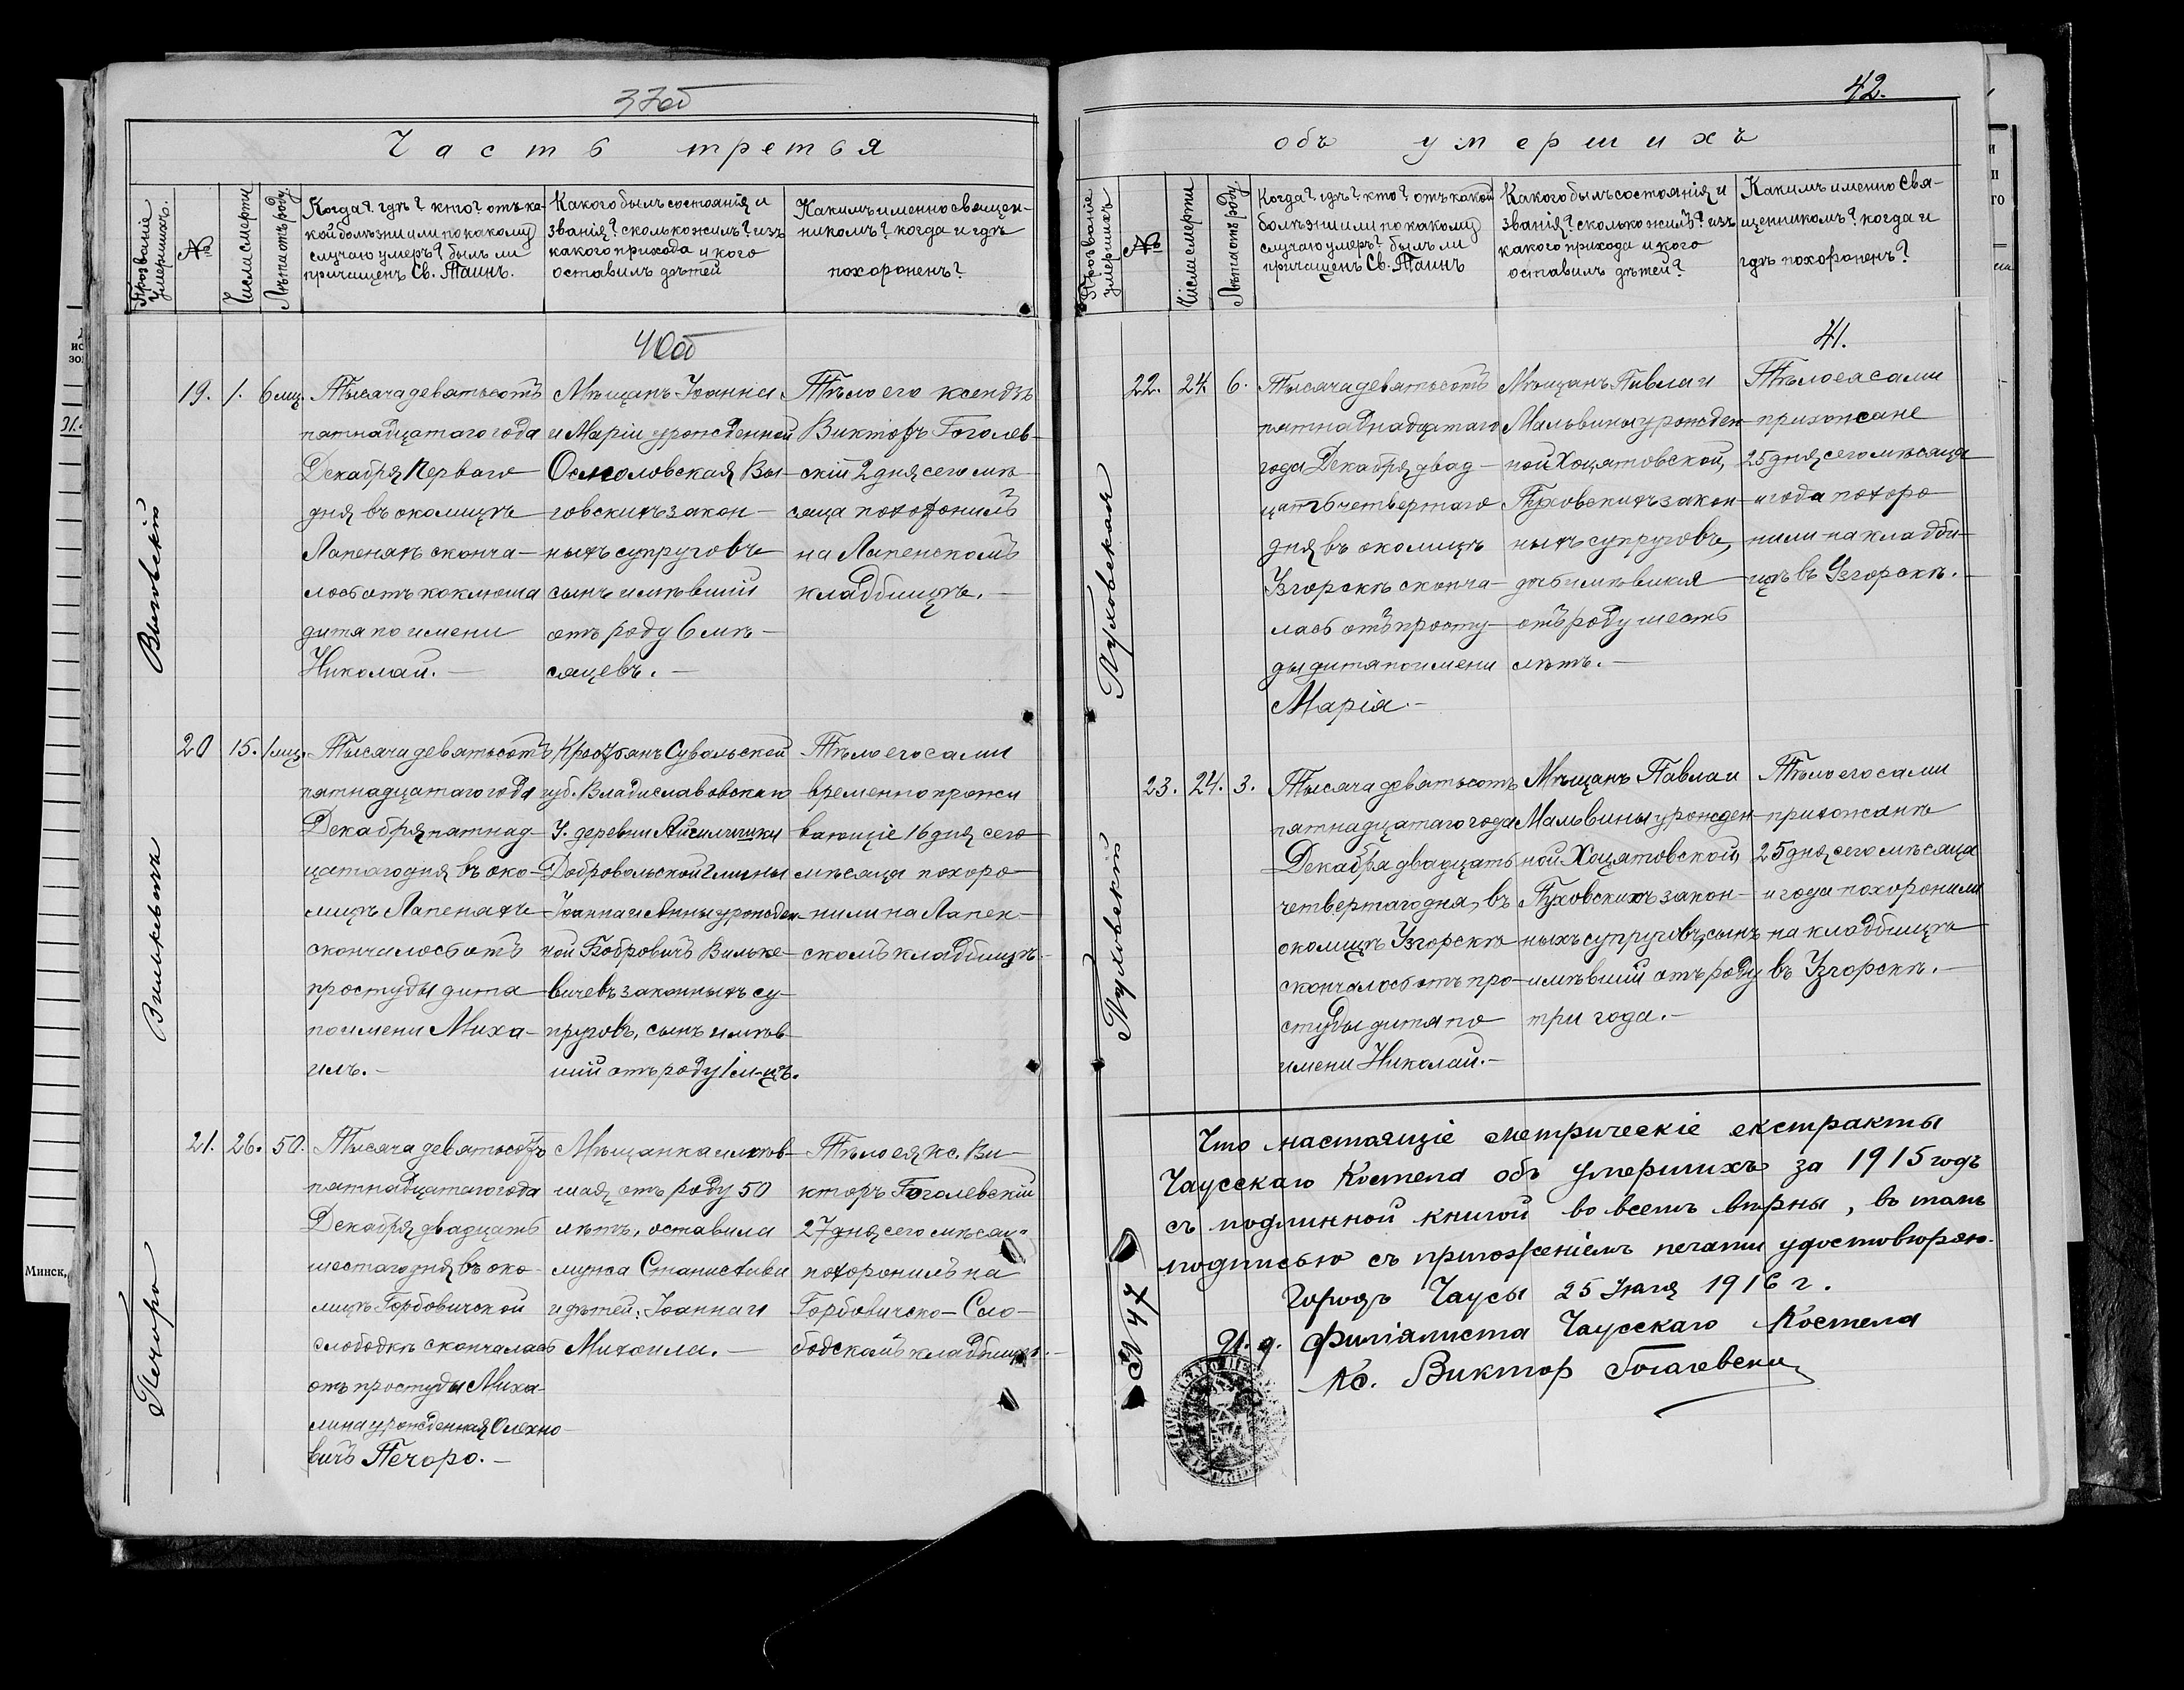 37об
Часть третья
Прозваніе умершихъ.
№
Числа смерти
Лѣта отъ роду.
Когда? гдѣ? кто? отъ ка-
кой болѣзни или по какому
случаю умеръ? былъ ли
причащенъ Св. Таинъ.
Какого былъ состоянія и
званія? сколько жилъ? изъ
какого прихода и кого
оставилъ дѣтей
Какимъ именно священ-
никомъ? когда и гдѣ
похороненъ?
40об
Выговскій
19.
1.
6 мц.
Тысяча девятьсотъ
пятнадцатаго года
Декабря Перваго
дня въ околицѣ
Лапеняхъ сконча-
лось отъ коклюша
дитя по имени
Николай.-
Мѣщанъ Іоанна
и Маріи урожденной
Осмоловская Вы-
говскихъ закон-
ныхъ супруговъ
сынъ имѣвшій
отъ роду 6 мѣ-
сяцевъ.-
Тѣло его ксендзъ
Викторъ Гоголев-
скій 2 дня сего мѣ-
сяца похоронилъ
на Лапенскомъ
кладбищѣ.-
Вилькевичъ
20
15.
1 мц.
Тысяча девятьсотъ
пятнадцатаго года
Декабря пятнад-
цатаго дня въ око-
лицѣ Лапеняхъ
скончилось отъ
простуды дитя
по имени Миха-
илъ.-
Крестьянъ Сувальской
губ. Владиславовскаго
У. деревни
Добровольской Гмины
Іоанна и Анны урожден-
ной Бобровичъ Вильке-
вичевъ законныхъ су-
пруговъ, сынъ имѣв-
шій отъ роду 1 м-цъ.
Тѣло его сами
временно прожи
вающіе 16 дня сего
мѣсяца похоро-
нили на Лапен-
скомъ кладбищѣ.-
Печоро
21.
26.
50.
Тысяча девятьсотъ
пятнадцатаго года
Декабря двадцать
шестаго дня въ око-
лицѣ Горбовичской
слободкѣ скончалась
отъ простуды Миха-
лина урожденная Олехно-
вичъ Печоро.-
Мѣщанка имѣв-
шая отъ роду 50
лѣтъ, оставила
мужа Станислава
и дѣтей: Іоанна и
Михаила.-
Тѣло ея кс. Ви-
кторъ Гоголевскій
27 дня сего мѣсяца
похоронилъ на
Горбовичско-Сло-
бодскомъ кладбищѣ.-
42.
объ умершихъ
Прозваніе умершихъ
№
Числа смерти
Лѣта отъ роду.
Когда? гдѣ? кто? отъ какой
болѣзни или по какому
случаю умеръ? былъ ли
причащенъ Св. Таинъ
Какого былъ состоянія и
званія? сколько жилъ? изъ
какого прихода и кого
оставилъ дѣтей?
Какимъ именно Свя-
щенникомъ? когда и
гдѣ похороненъ?
41.
Пуховская
22.
24
6.
Тысяча девятьсотъ
пятнаднадцатаго
года Декабря двад-
цать четвертаго
дня въ околицѣ
Узгорскѣ сконча-
лась отъ просту-
ды дитя по имени
Марія.-
Мѣщанъ Павла и
Мальвины урожден-
ной Хоцятовской,
Пуховскихъ закон-
ныхъ супруговъ,
дочь имѣвшая
отъ роду шесть
лѣтъ.-
Тѣло ея сами
прихожане
25 дня сего мѣсяца
и года похоро
нили на кладби-
щѣ въ Узгорскѣ.-
Пуховскій
23.
24.
3.
Тысяча девятьсотъ
пятнадцатаго года
Декабря двадцать
четвертаго дня, въ
околицѣ Узгорскѣ
скончалось отъ про-
студы дитя по
имени Николай.-
Мѣщанъ Павла и
Мальвины урожден-
ной Хоцятовской,
Пуховскихъ закон-
ныхъ супруговъ, сынъ
имѣвшій отъ роду
три года.-
Тѣло его сами
прихожанѣ
25 дня сего мѣсяца
и года похоронили
на кладбищѣ
въ Узгорскѣ.-
Что настоящіе метрическіе екстракты
Чаусскаго Костела объ умершихъ за 1915 годъ
съ подлинной книгой во всемъ вѣрны, въ томъ
подписью съ приложеніемъ печати удостовѣряю.
Городъ Чаусы 25 Іюля 1916 г.
№ 47
И. д. Филіалиста Чаусскаго Костела
Кс. Виктор Гоголевски
Минск,